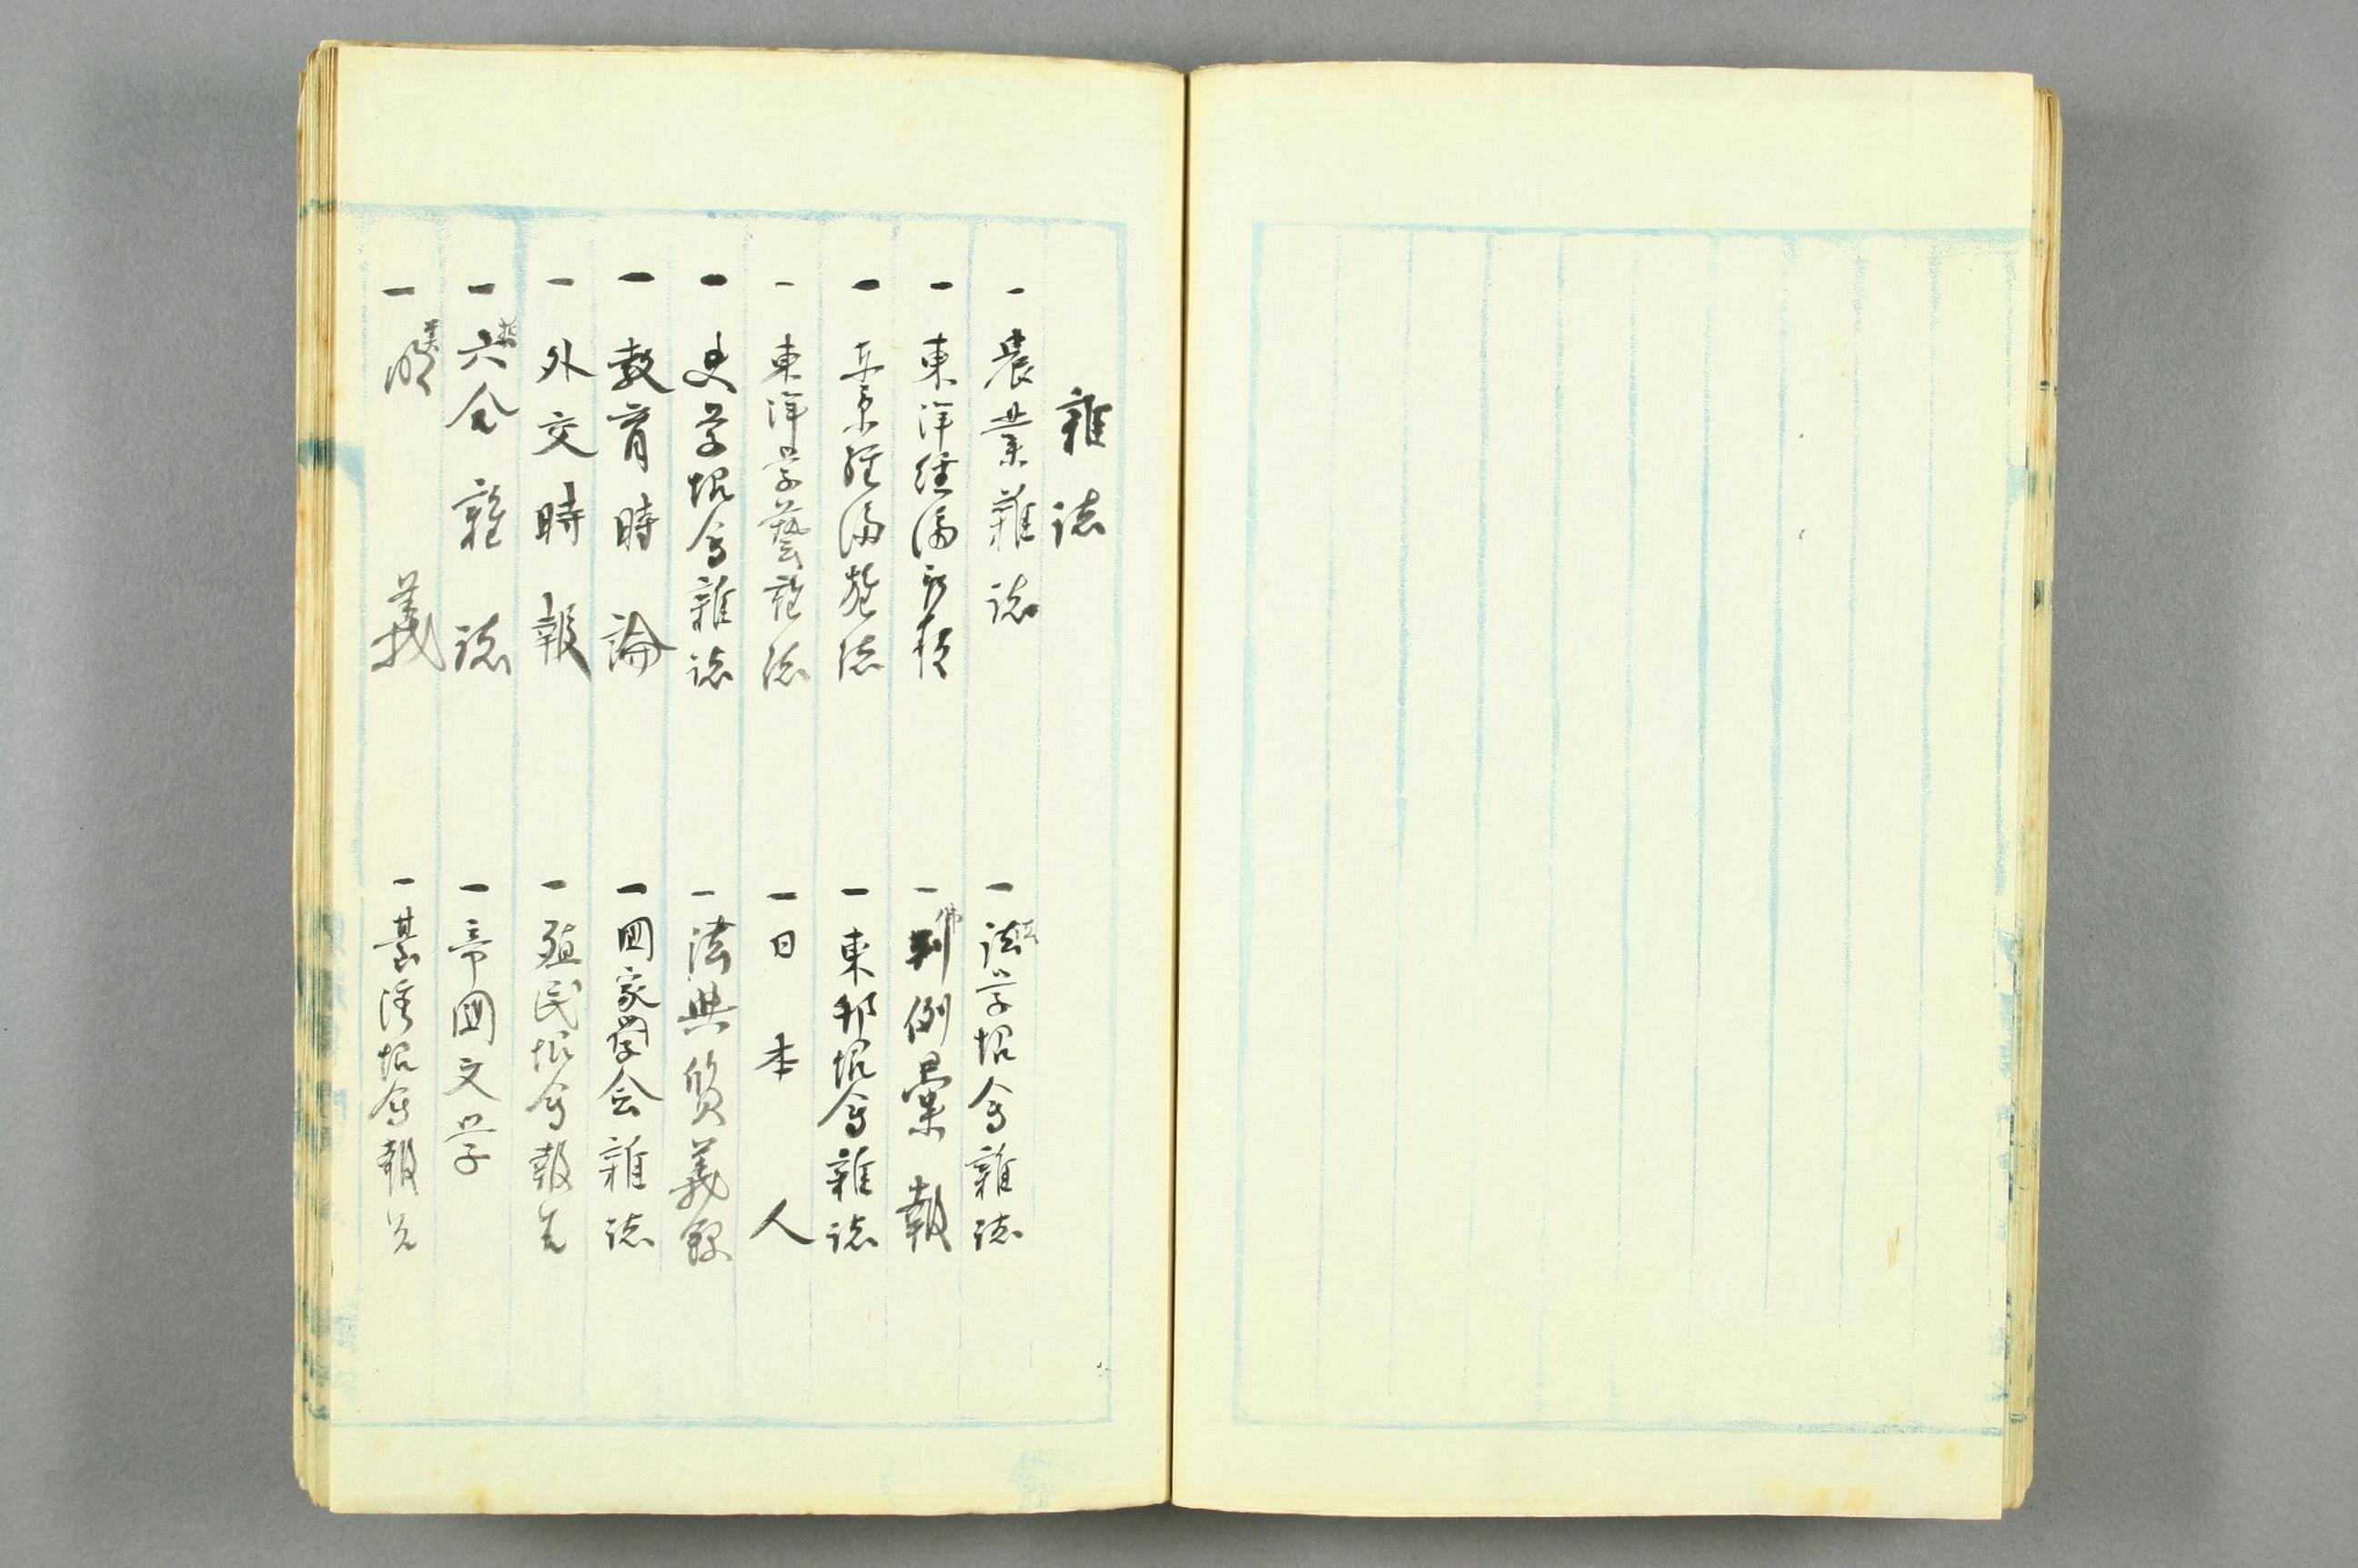 雜誌
一 農業雜誌
一 法学協會雜誌
一 東洋經濟新報
一 判例彙報
一 東京經濟雜誌
一 東邦協會雜誌
一 東洋学藝雜誌
一 日本人
一 史学協會雜誌
一 法典質義錄
一 教育時論
一 國家學会雜誌
一 外交時報
一 殖民協會報告
一 六合雜誌
一 帝國文学
一 明義
一 臺湾協會報告